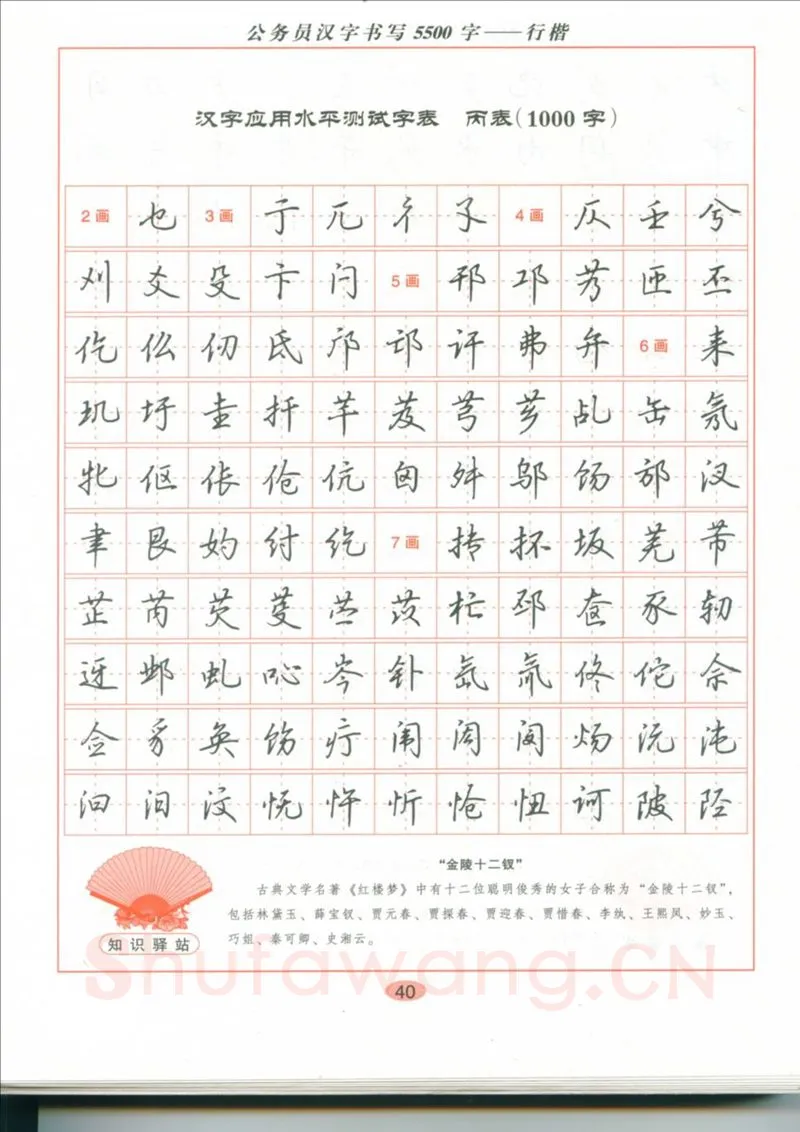 公务员汉字书写5500字——行楷
汉字应用水平测试字表 丙表(1000字)
2画 乜 3画 亍 兀 彳 孓 4画 仄 壬 兮
刈 爻 殳 卞 闩 5画 邗 邛 艿 匝 丕
仡 仫 仞 氐 邝 邙 讦 弗 弁 6画 耒
玑 圩 圭 扦 芊 芨 芎 芗 乩 缶 氖
牝 伛 伥 伧 伉 囟 舛 邬 饧 邡 汊
聿 艮 妁 纣 纥 7画 抟 抔 坂 芜 芾
芷 芮 芡 芟 苎 茨 杧 邳 奁 豕 轫
迓 邺 虬 吣 岑 钋 氙 氚 佟 佗 佘
佥 豸 奂 饬 疔 闱 闳 阌 炀 沅 沌
汩 汨 汶 忱 忤 忻 怆 忸 诃 陂 陉
“金陵十二钗”
古典文学名著《红楼梦》中有十二位聪明俊秀的女子合称为“金陵十二钗”,
包括林黛玉、薛宝钗、贾元春、贾探春、贾迎春、贾惜春、李纨、王熙凤、妙玉、
巧姐、秦可卿、史湘云。
知识驿站
Shufawang.CN
40